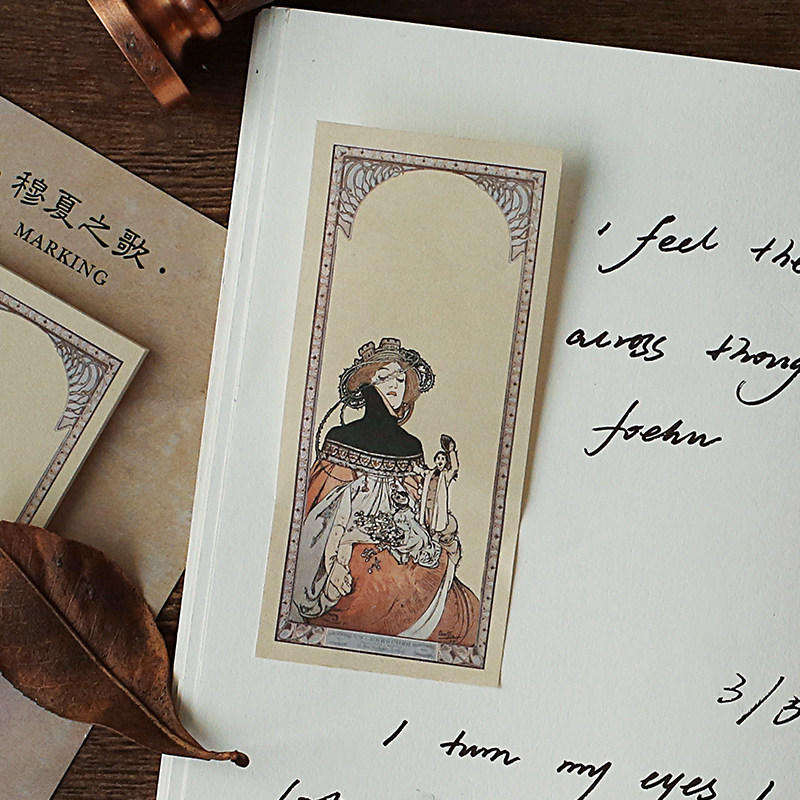 穆夏之歌
MARKING
i feel the
across thong
foehn
3/3
I turn my eyes